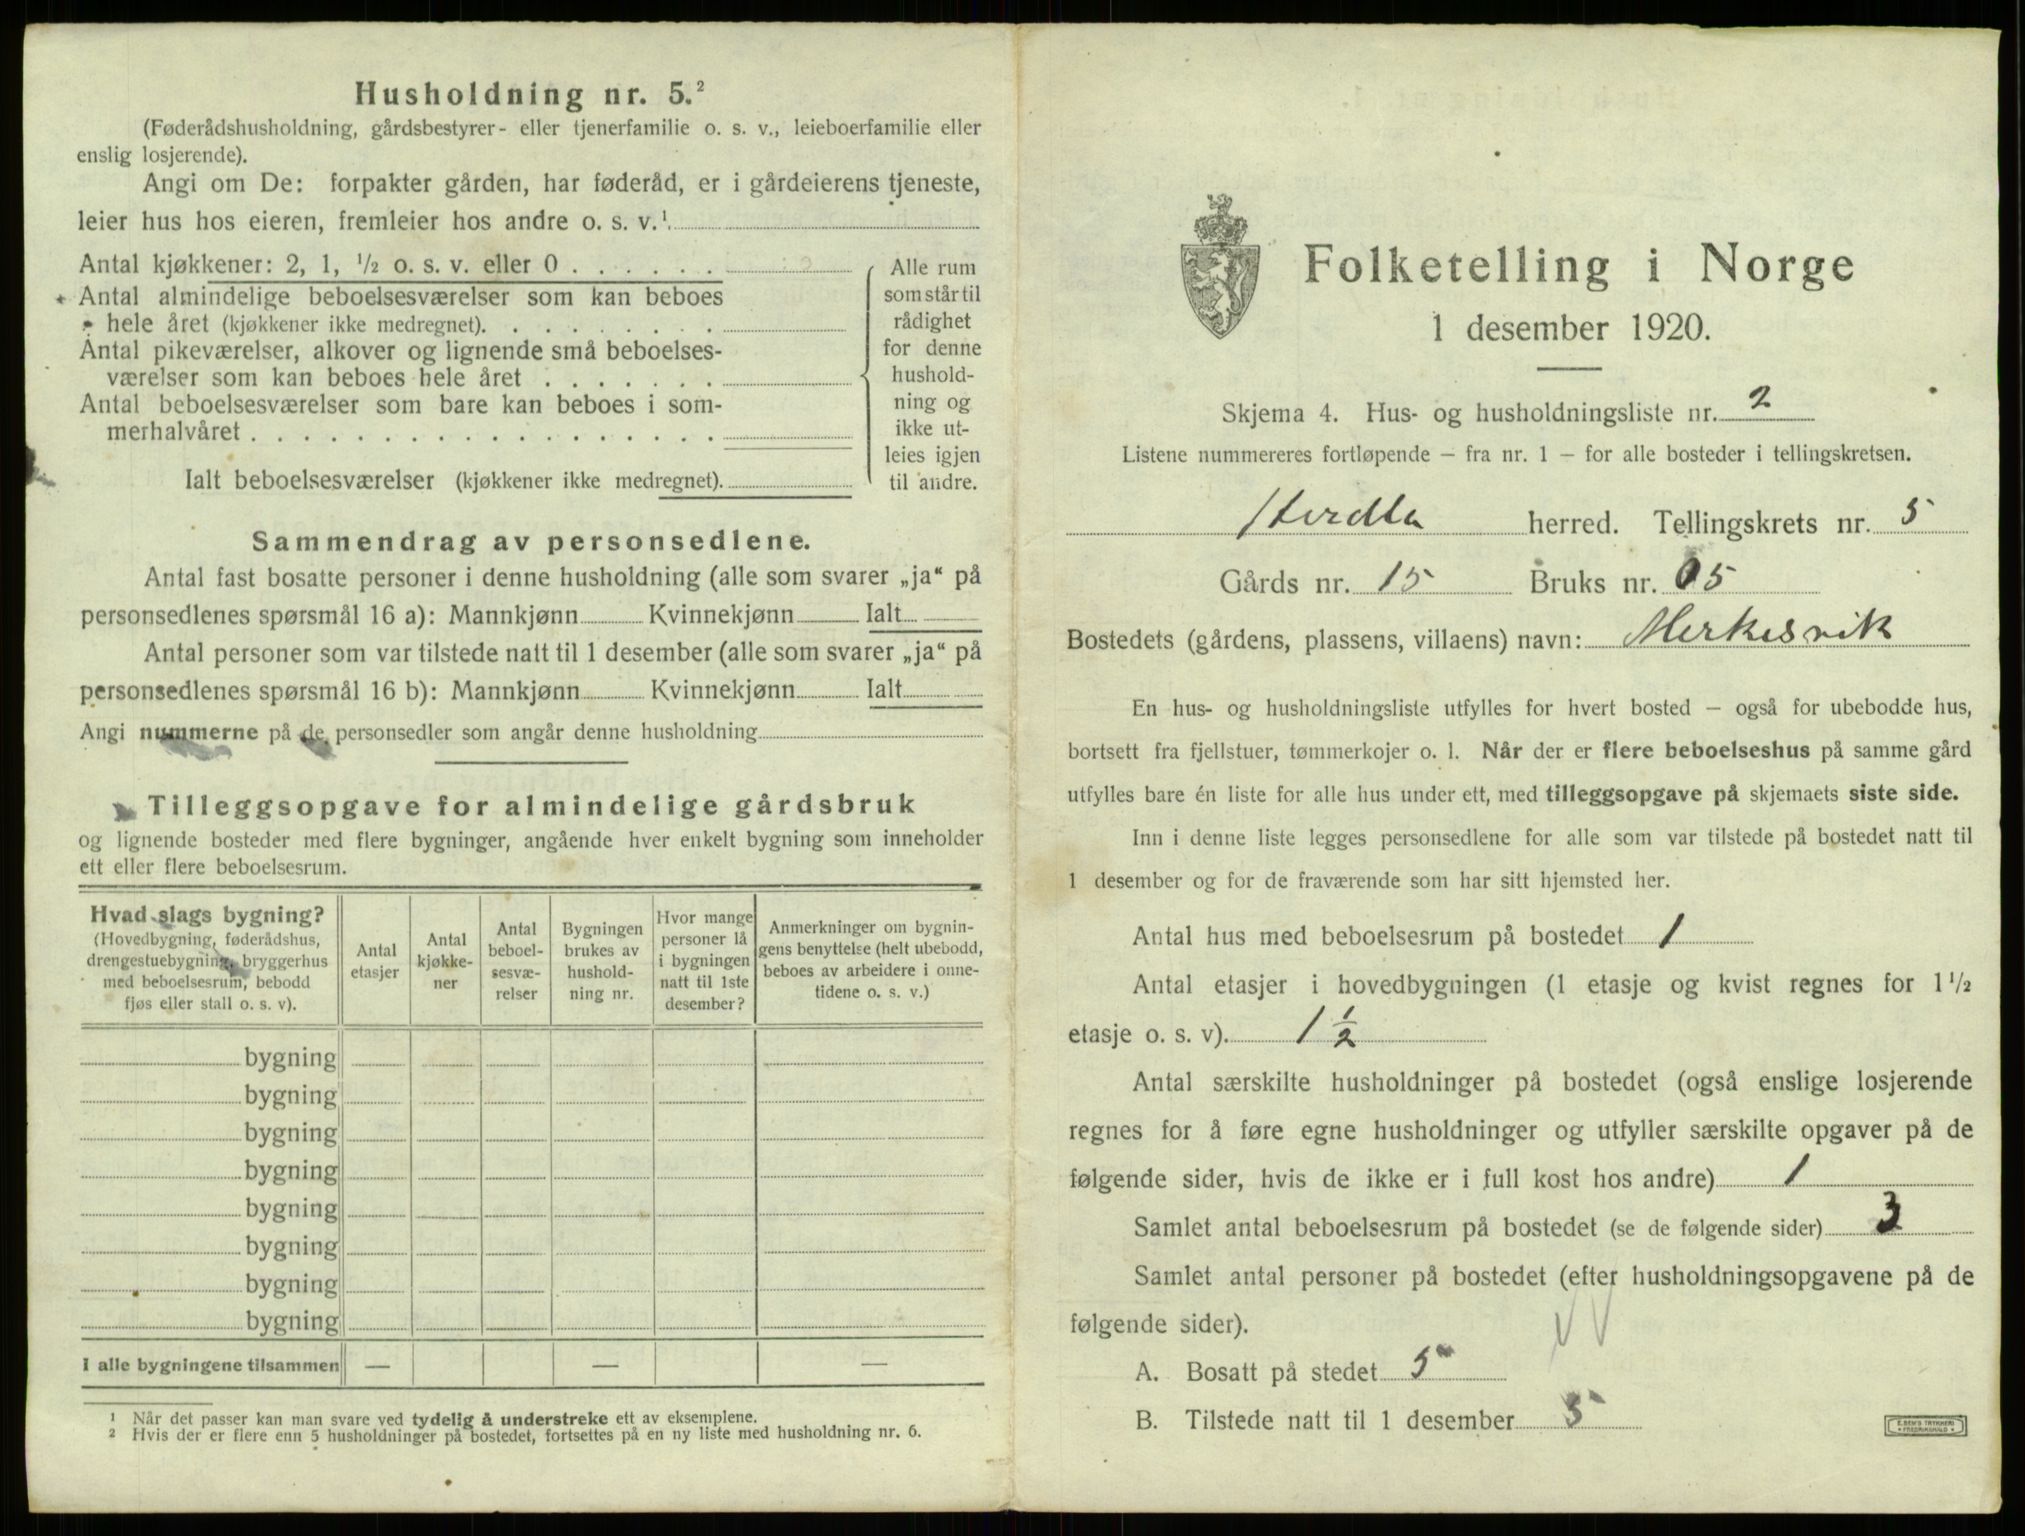 Husholdning nr. 5.²
(Føderådshusholdning, gårdsbestyrer- eller tjenerfamilie o. s. v., leieboerfamilie eller
enslig losjerende).
Angi om De: forpakter gården, har føderåd, er i gårdeierens tjeneste,
leier hus hos eieren, fremleier hos andre o. s. v.¹
Antal kjøkkener: 2, 1, ½ o. s. v. eller 0 . . . . . .
Antal almindelige beboelsesværelser som kan beboes
hele året (kjøkkener ikke medregnet). . . . . . . . .
Antal pikeværelser, alkover og lignende små beboelses-
værelser som kan beboes hele året . . . . . . .
Antal beboelsesværelser som bare kan beboes i som-
merhalvåret . . . . . . . . . . . . . . . . . .
Ialt beboelsesværelser (kjøkkener ikke medregnet).
Alle rum
som står til
rådighet
for denne
hushold-
ning og
ikke ut-
leies igjen
til andre.
Sammendrag av personsedlene.
Antal fast bosatte personer i denne husholdning (alle som svarer „ja“ på
personsedlenes spørsmål 16 a): Mannkjønn Kvinnekjønn Ialt
Antal personer som var tilstede natt til 1 desember (alle som svarer „ja“ på
personsedlenes spørsmål 16 b): Mannkjønn Kvinnekjønn Ialt
Angi nummerne på de personsedler som angår denne husholdning
Tilleggsopgave for almindelige gårdsbruk
og lignende bosteder med flere bygninger, angående hver enkelt bygning som inneholder
ett eller flere beboelsesrum.
Hvad slags bygning?
(Hovedbygning, føderådshus,
drengestuebygning, bryggerhus
med beboelsesrum, bebodd
fjøs eller stall o. s. v).
Antal
etasjer
Antal
kjøkke-
ner
Antal
beboel-
sesvæ-
relser
Bygningen
brukes av
hushold-
ning nr.
Hvor mange
personer lå
i bygningen
natt til 1ste
desember?
Anmerkninger om bygnin-
gens benyttelse (helt ubebodd,
beboes av arbeidere i onne-
tidene o. s. v.)
bygning
bygning
bygning
bygning
bygning
bygning
bygning
bygning
I alle bygningene tilsammen — — —
¹ Når det passer kan man svare ved tydelig å understreke ett av eksemplene.
² Hvis der er flere enn 5 husholdninger på bostedet, fortsettes på en ny liste med husholdning nr. 6.
Folketelling i Norge
1 desember 1920.
Skjema 4. Hus- og husholdningsliste nr. 2
Listene nummereres fortløpende — fra nr. 1 — for alle bosteder i tellingskretsen.
Herdla herred. Tellingskrets nr. 5
Gårds nr. 15 Bruks nr. 5
Bostedets (gårdens, plassens, villaens) navn: Merkesvik
En hus- og husholdningsliste utfylles for hvert bosted — også for ubebodde hus,
bortsett fra fjellstuer, tømmerkojer o. l. Når der er flere beboelseshus på samme gård
utfylles bare én liste for alle hus under ett, med tilleggsopgave på skjemaets siste side.
Inn i denne liste legges personsedlene for alle som var tilstede på bostedet natt til
1 desember og for de fraværende som har sitt hjemsted her.
Antal hus med beboelsesrum på bostedet 1
Antal etasjer i hovedbygningen (1 etasje og kvist regnes for 1½
etasje o. s. v). 1½
Antal særskilte husholdninger på bostedet (også enslige losjerende
regnes for å føre egne husholdninger og utfyller særskilte opgaver på de
følgende sider, hvis de ikke er i full kost hos andre) 1
Samlet antal beboelsesrum på bostedet (se de følgende sider) 3
Samlet antal personer på bostedet (efter husholdningsopgavene på de
følgende sider).
A. Bosatt på stedet 5
B. Tilstede natt til 1 desember 5
E. SEM'S TRYKKERI
FREDRIKSHALD